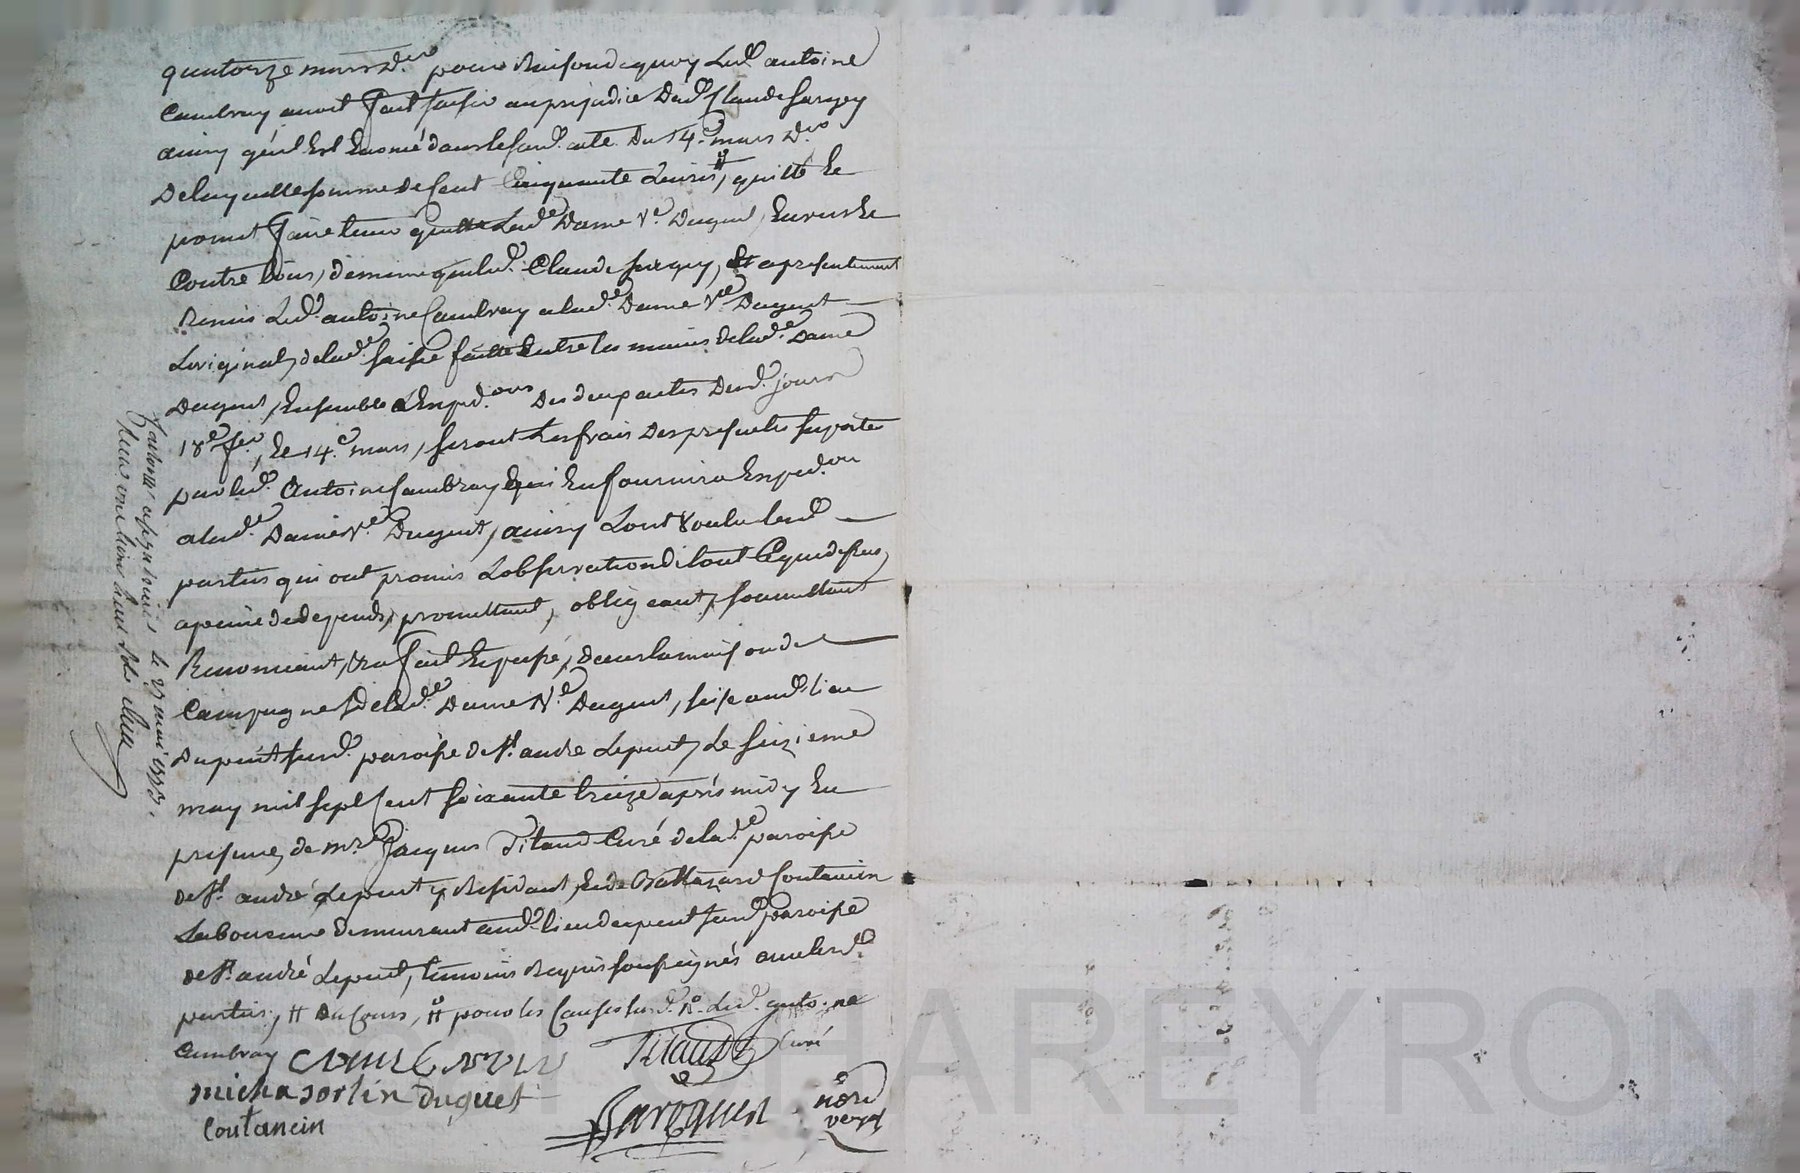 quatorze mars dr. pour Raison de quoy Led. antoine
Cambray avoit fait saisir au prejudice dud. Claude Sargey
ainsy qu'il Est Enoncé dans le susd. acte du 14e. mars dr.
De laquelle somme de Cent Cinquante Livres, quitte Et
promet faire tenir quitte Lad.e Dame Ve. Duguet, Envers Et
Contre tous, de meme que led. Claude Sargey, Et a presentement
Remis Led. antoine Cambray a lad.e Dame Ve. Duguet
Loriginal, de lad.e saisie faitte Entre les mains de lad.e Dame
Duguet, Ensemble Expéd.ons Des deux actes Desd. jours
18e fer., Et 14e. mars, seront Les frais Des presentes suportés
par led. Antoine Cambray qui En fournira Expéd.on
a lad.e Dame Ve. Duguet, ainsy Lont Voulu lesd.
parties qui ont promis Lobservation de tout Ce que dessus
a peine de depends, promettant, obligeant, soumettant
Renonceant, &ra fait Et passé, dans la maison de
Campagne de lad.e Dame Ve. Duguet, sise aud. lieu
Dupuit susd. paroisse de St. andré Lepuit, Le seizieme
may mil sept Cent soixante treize après midy En
presence de mre. Jacques Titaud Curé de lad.e paroisse
de St. andré Lepuit y Residant, Et de Baltazard Coutancin
Laboureur demeurant aud. lieu dupuit susd. paroisse
de St. andré Lepuit, temoins Requis soussignés avec lesd.
parties, # Du Cours, # pour les Causes susd. Led. antoine
Cambray
Titaud Curé
micha sorlin Duguet
Coutancin
Baroquen nore